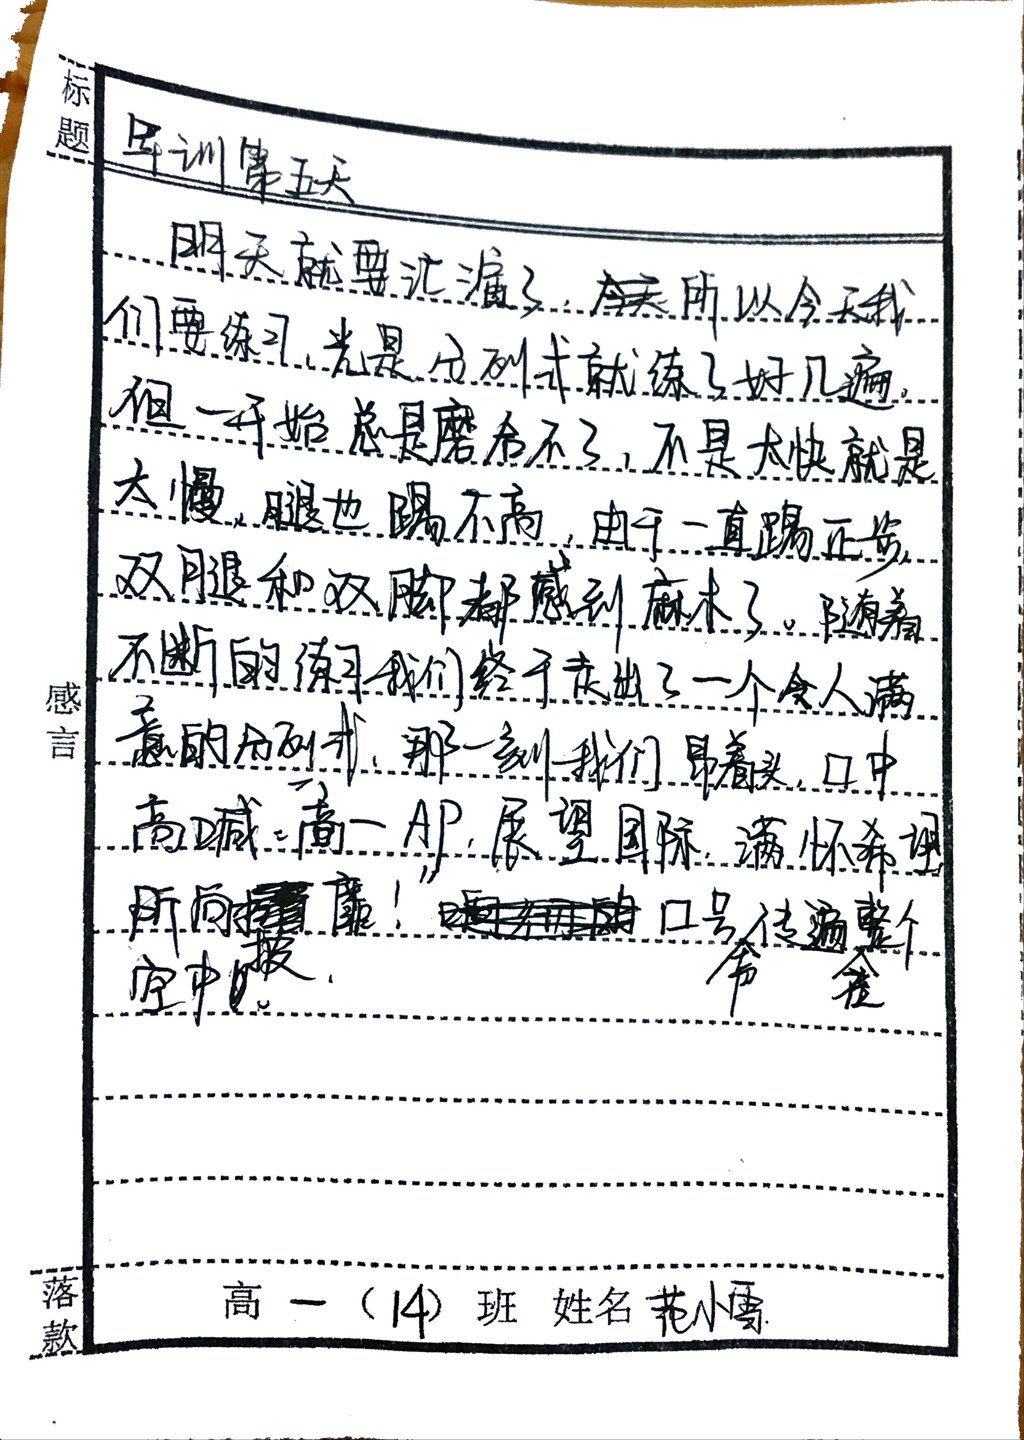 标题
军训第五天
明天就要汇演了,所以今天我
们要练习,光是分列式就练了好几遍,
但一开始总是磨合不了,不是太快就是
太慢,腿也踢不高,由于一直踢正步,
双腿和双脚都感到麻木了。随着
不断的练习我们终于走出了一个令人满
意的分列式,那一刻我们昂着头,口中
高喊:“高一AP,展望国际,满怀希望
所向披靡!”口号传遍整个
空中。
感言
落款
高一(14)班 姓名 范小雪